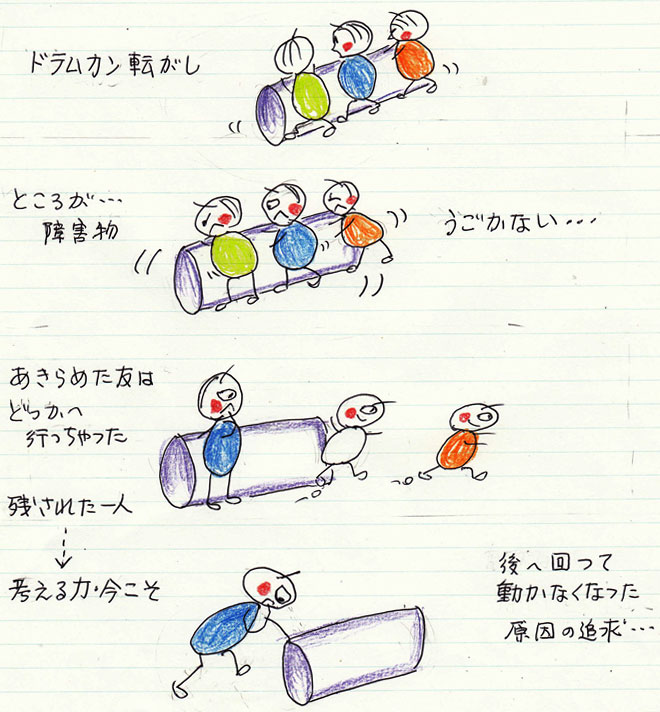 ドラムカン転がし
ところが…
障害物
うごかない…
あきらめた友は
どっかへ
行っちゃった
残された一人
考える力・今こそ
後へ回って
動かなくなった
原因の追求…